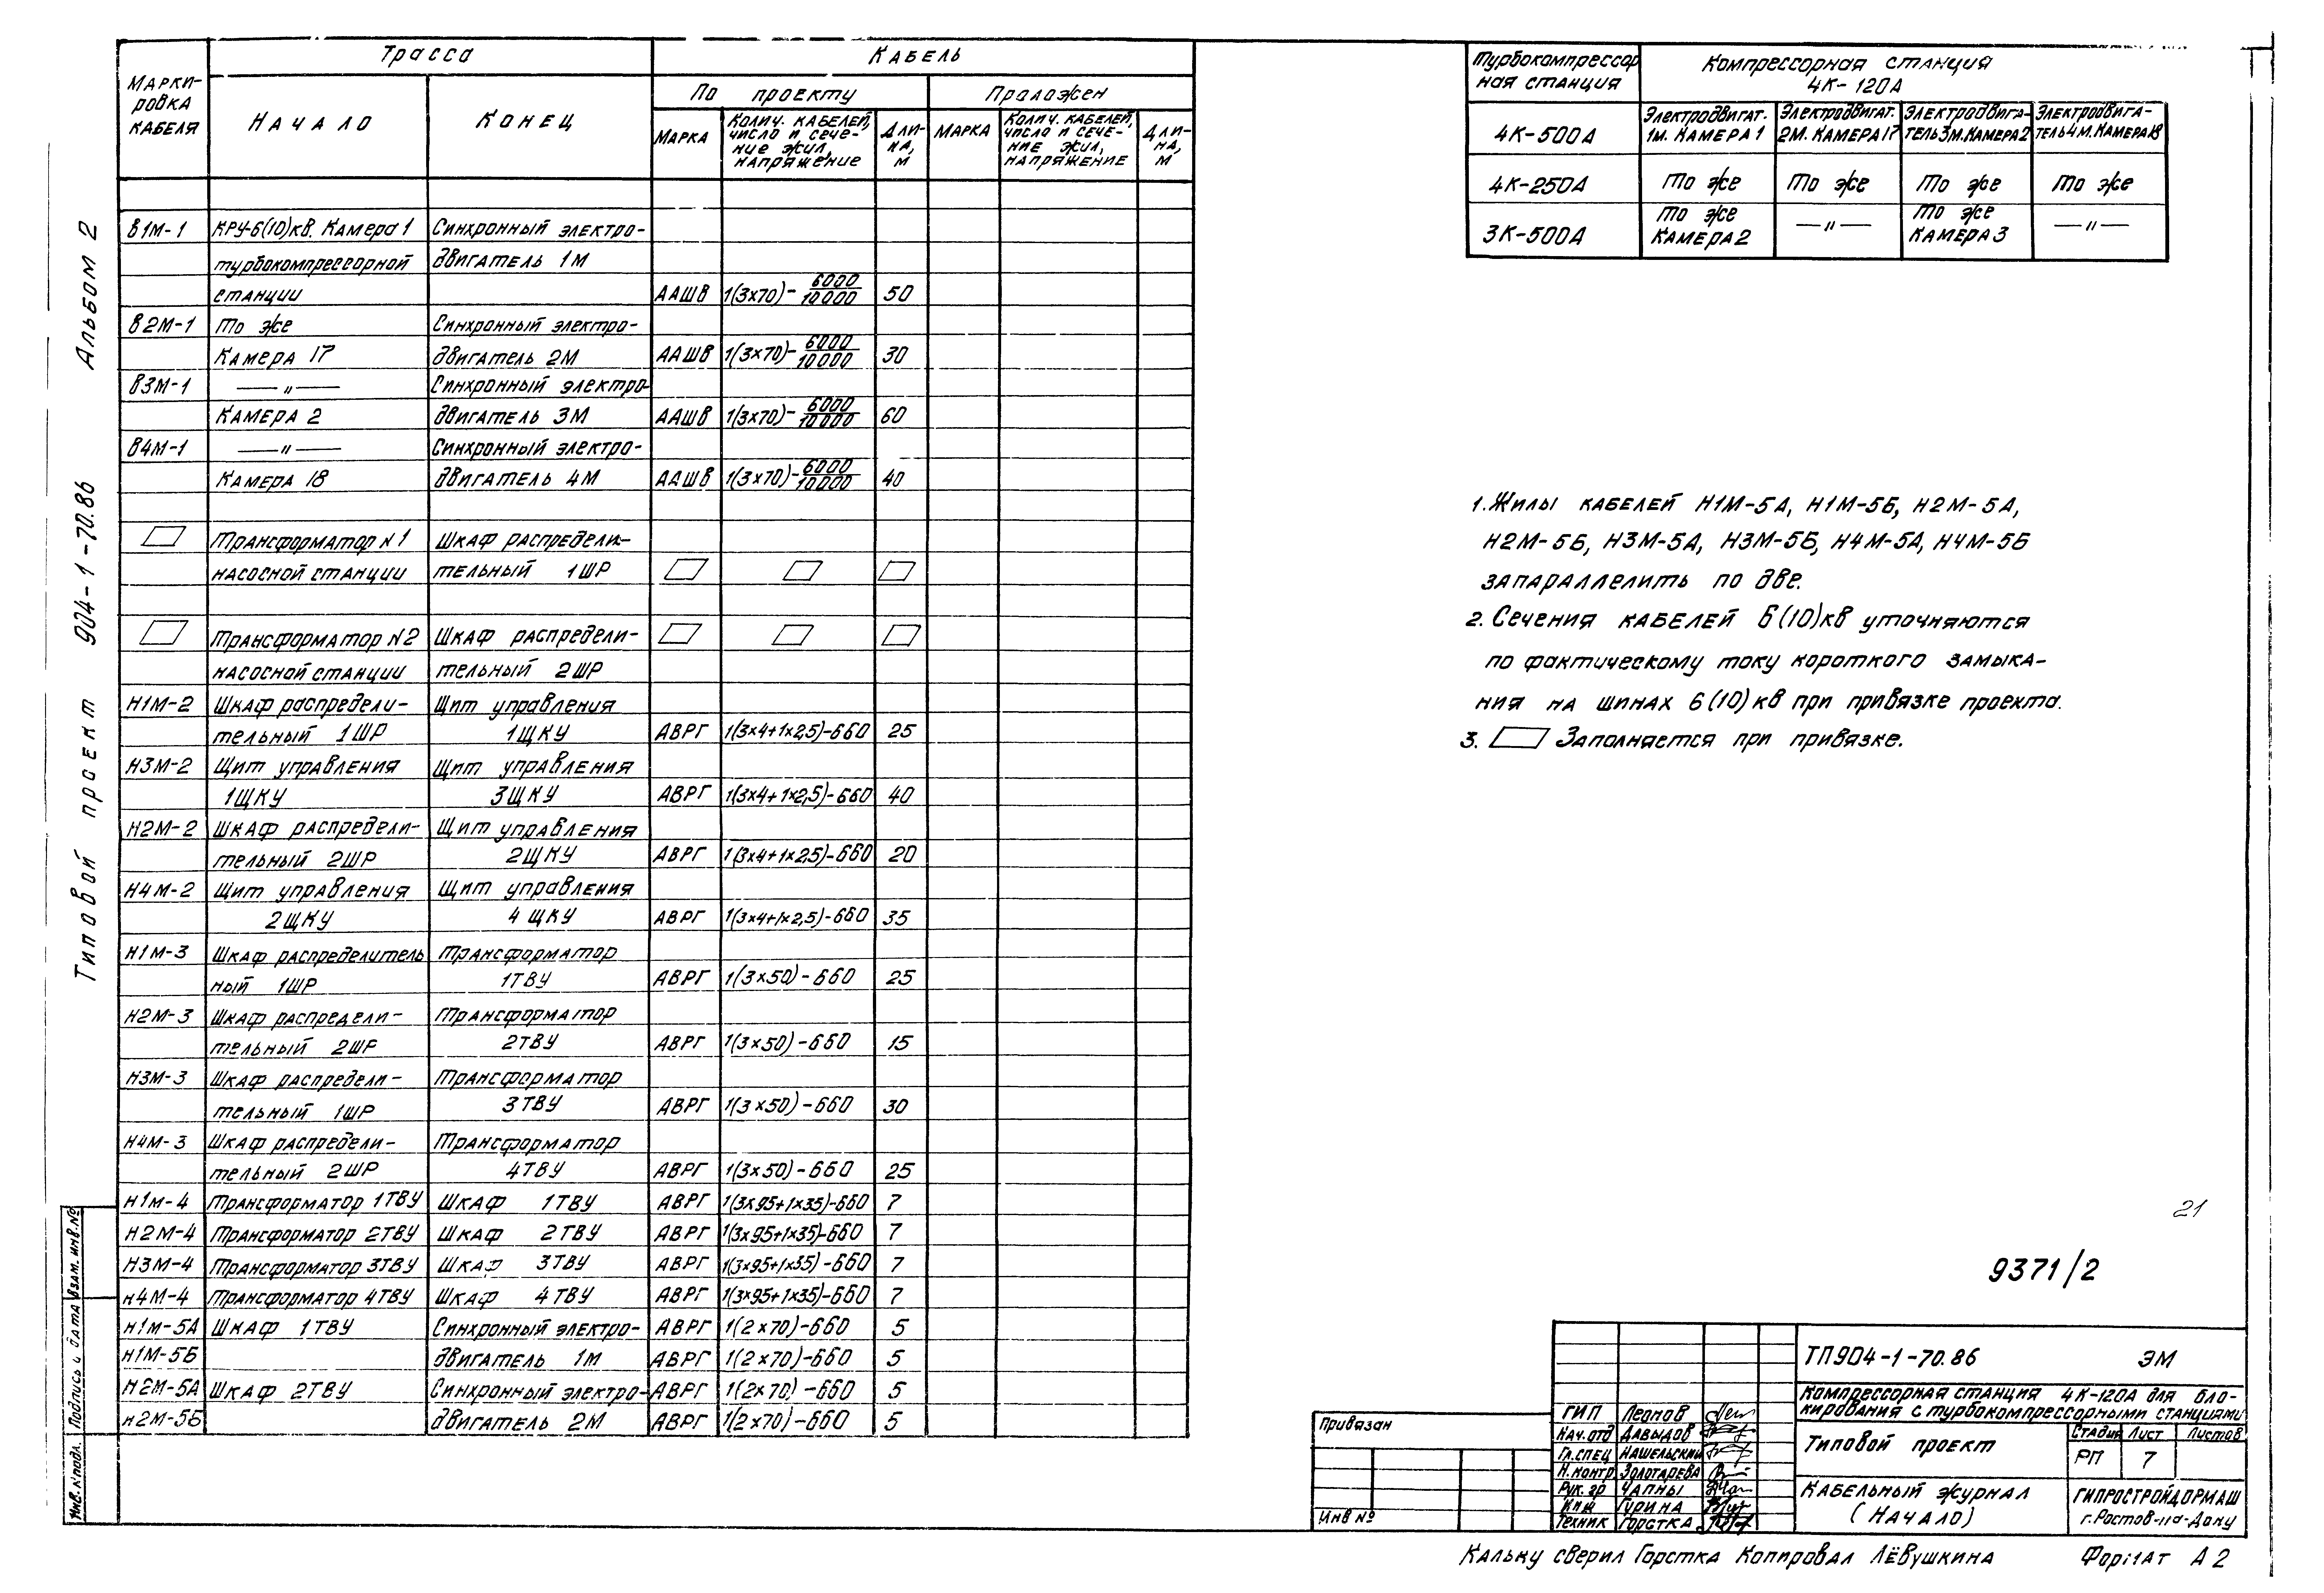 Типовой проект 904-1-70.86 Альбом 2
Трасса Кабель
Марки-
ровка
кабеля
Начало Конец
По проекту Проложен
Марка
Колич. кабелей,
число и сече-
ние жил,
напряжение
Дли-
на,
м
Марка
Колич. кабелей,
число и сече-
ние жил,
напряжение
Дли-
на,
м
В1М-1 КРУ-6(10)кв. Камера 1 Синхронный электро-
турбокомпрессорной двигатель 1М
станции ААШВ 1(3×70)-6000/10000 50
В2М-1 То же Синхронный электро-
Камера 17 двигатель 2М ААШВ 1(3×70)-6000/10000 30
В3М-1 —"— Синхронный электро-
Камера 2 двигатель 3М ААШВ 1(3×70)-6000/10000 60
В4М-1 —"— Синхронный электро-
Камера 18 двигатель 4М ААШВ 1(3×70)-6000/10000 40
Трансформатор N1 Шкаф распредели-
насосной станции тельный 1ШР
Трансформатор N2 Шкаф распредели-
насосной станции тельный 2ШР
Н1М-2 Шкаф распредели- Щит управления
тельный 1ШР 1ЩКУ АВРГ 1(3×4+1×2,5)-660 25
Н3М-2 Щит управления Щит управления
1ЩКУ 3ЩКУ АВРГ 1(3×4+1×2,5)-660 40
Н2М-2 Шкаф распредели- Щит управления
тельный 2ШР 2ЩКУ АВРГ 1(3×4+1×2,5)-660 20
Н4М-2 Щит управления Щит управления
2ЩКУ 4ЩКУ АВРГ 1(3×4+1×2,5)-660 35
Н1М-3 Шкаф распределитель Трансформатор
ный 1ШР 1ТВУ АВРГ 1(3×50)-660 25
Н2М-3 Шкаф распредели- Трансформатор
тельный 2ШР 2ТВУ АВРГ 1(3×50)-660 15
Н3М-3 Шкаф распредели- Трансформатор
тельный 1ШР 3ТВУ АВРГ 1(3×50)-660 30
Н4М-3 Шкаф распредели- Трансформатор
тельный 2ШР 4ТВУ АВРГ 1(3×50)-660 25
Н1М-4 Трансформатор 1ТВУ Шкаф 1ТВУ АВРГ 1(3×95+1×35)-660 7
Н2М-4 Трансформатор 2ТВУ Шкаф 2ТВУ АВРГ 1(3×95+1×35)-660 7
Н3М-4 Трансформатор 3ТВУ Шкаф 3ТВУ АВРГ 1(3×95+1×35)-660 7
Н4М-4 Трансформатор 4ТВУ Шкаф 4ТВУ АВРГ 1(3×95+1×35)-660 7
Н1М-5А Шкаф 1ТВУ Синхронный электро- АВРГ 1(2×70)-660 5
Н1М-5Б двигатель 1М АВРГ 1(2×70)-660 5
Н2М-5А Шкаф 2ТВУ Синхронный электро- АВРГ 1(2×70)-660 5
Н2М-5Б двигатель 2М АВРГ 1(2×70)-660 5
Турбокомпрессор
ная станция
Компрессорная станция
4К-120А
4К-500А
Электродвигат.
1М. Камера 1
Электродвигат.
2М. Камера 17
Электродвига-
тель 3М. Камера 2
Электродвига-
тель 4М. Камера 18
4К-250А То же То же То же То же
3К-500А
То же
Камера 2
—"—
То же
Камера 3
—"—
1. Жилы кабелей Н1М-5А, Н1М-5Б, Н2М-5А,
Н2М-5Б, Н3М-5А, Н3М-5Б, Н4М-5А, Н4М-5Б
запараллелить по две.
2. Сечения кабелей 6(10)кв уточняются
по фактическому току короткого замыка-
ния на шинах 6(10)кв при привязке проекта.
3. Заполняется при привязке.
21
9371/2
ТП904-1-70.86 ЭМ
Компрессорная станция 4К-120А для бло-
кирования с турбокомпрессорными станциями
Типовой проект
Стадия Лист Листов
РП 7
Кабельный журнал
(Начало)
ГИПРОСТРОЙДОРМАШ
г. Ростов-на-Дону
ГИП Леонов
Нач. отд Давыдов
Гл. спец Нашельский
Н. контр. Золотарева
Рук. гр Чапны
Инж Гурина
Техник Горстка
Привязан
Инв №
Взам. инв. №
Подпись и дата
Инв. № подл.
Кальку сверил Горстка Копировал Лёвушкина Формат А2